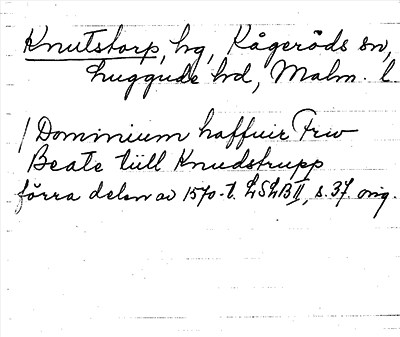 Knutstorp, hg, Kågeröds sn,
Luggude hd, Malm. l
/ Dominium haffuir Frw
Beate tiill Knudstrupp
förra delen av 1570-t. LSLB II, s. 37. orig.